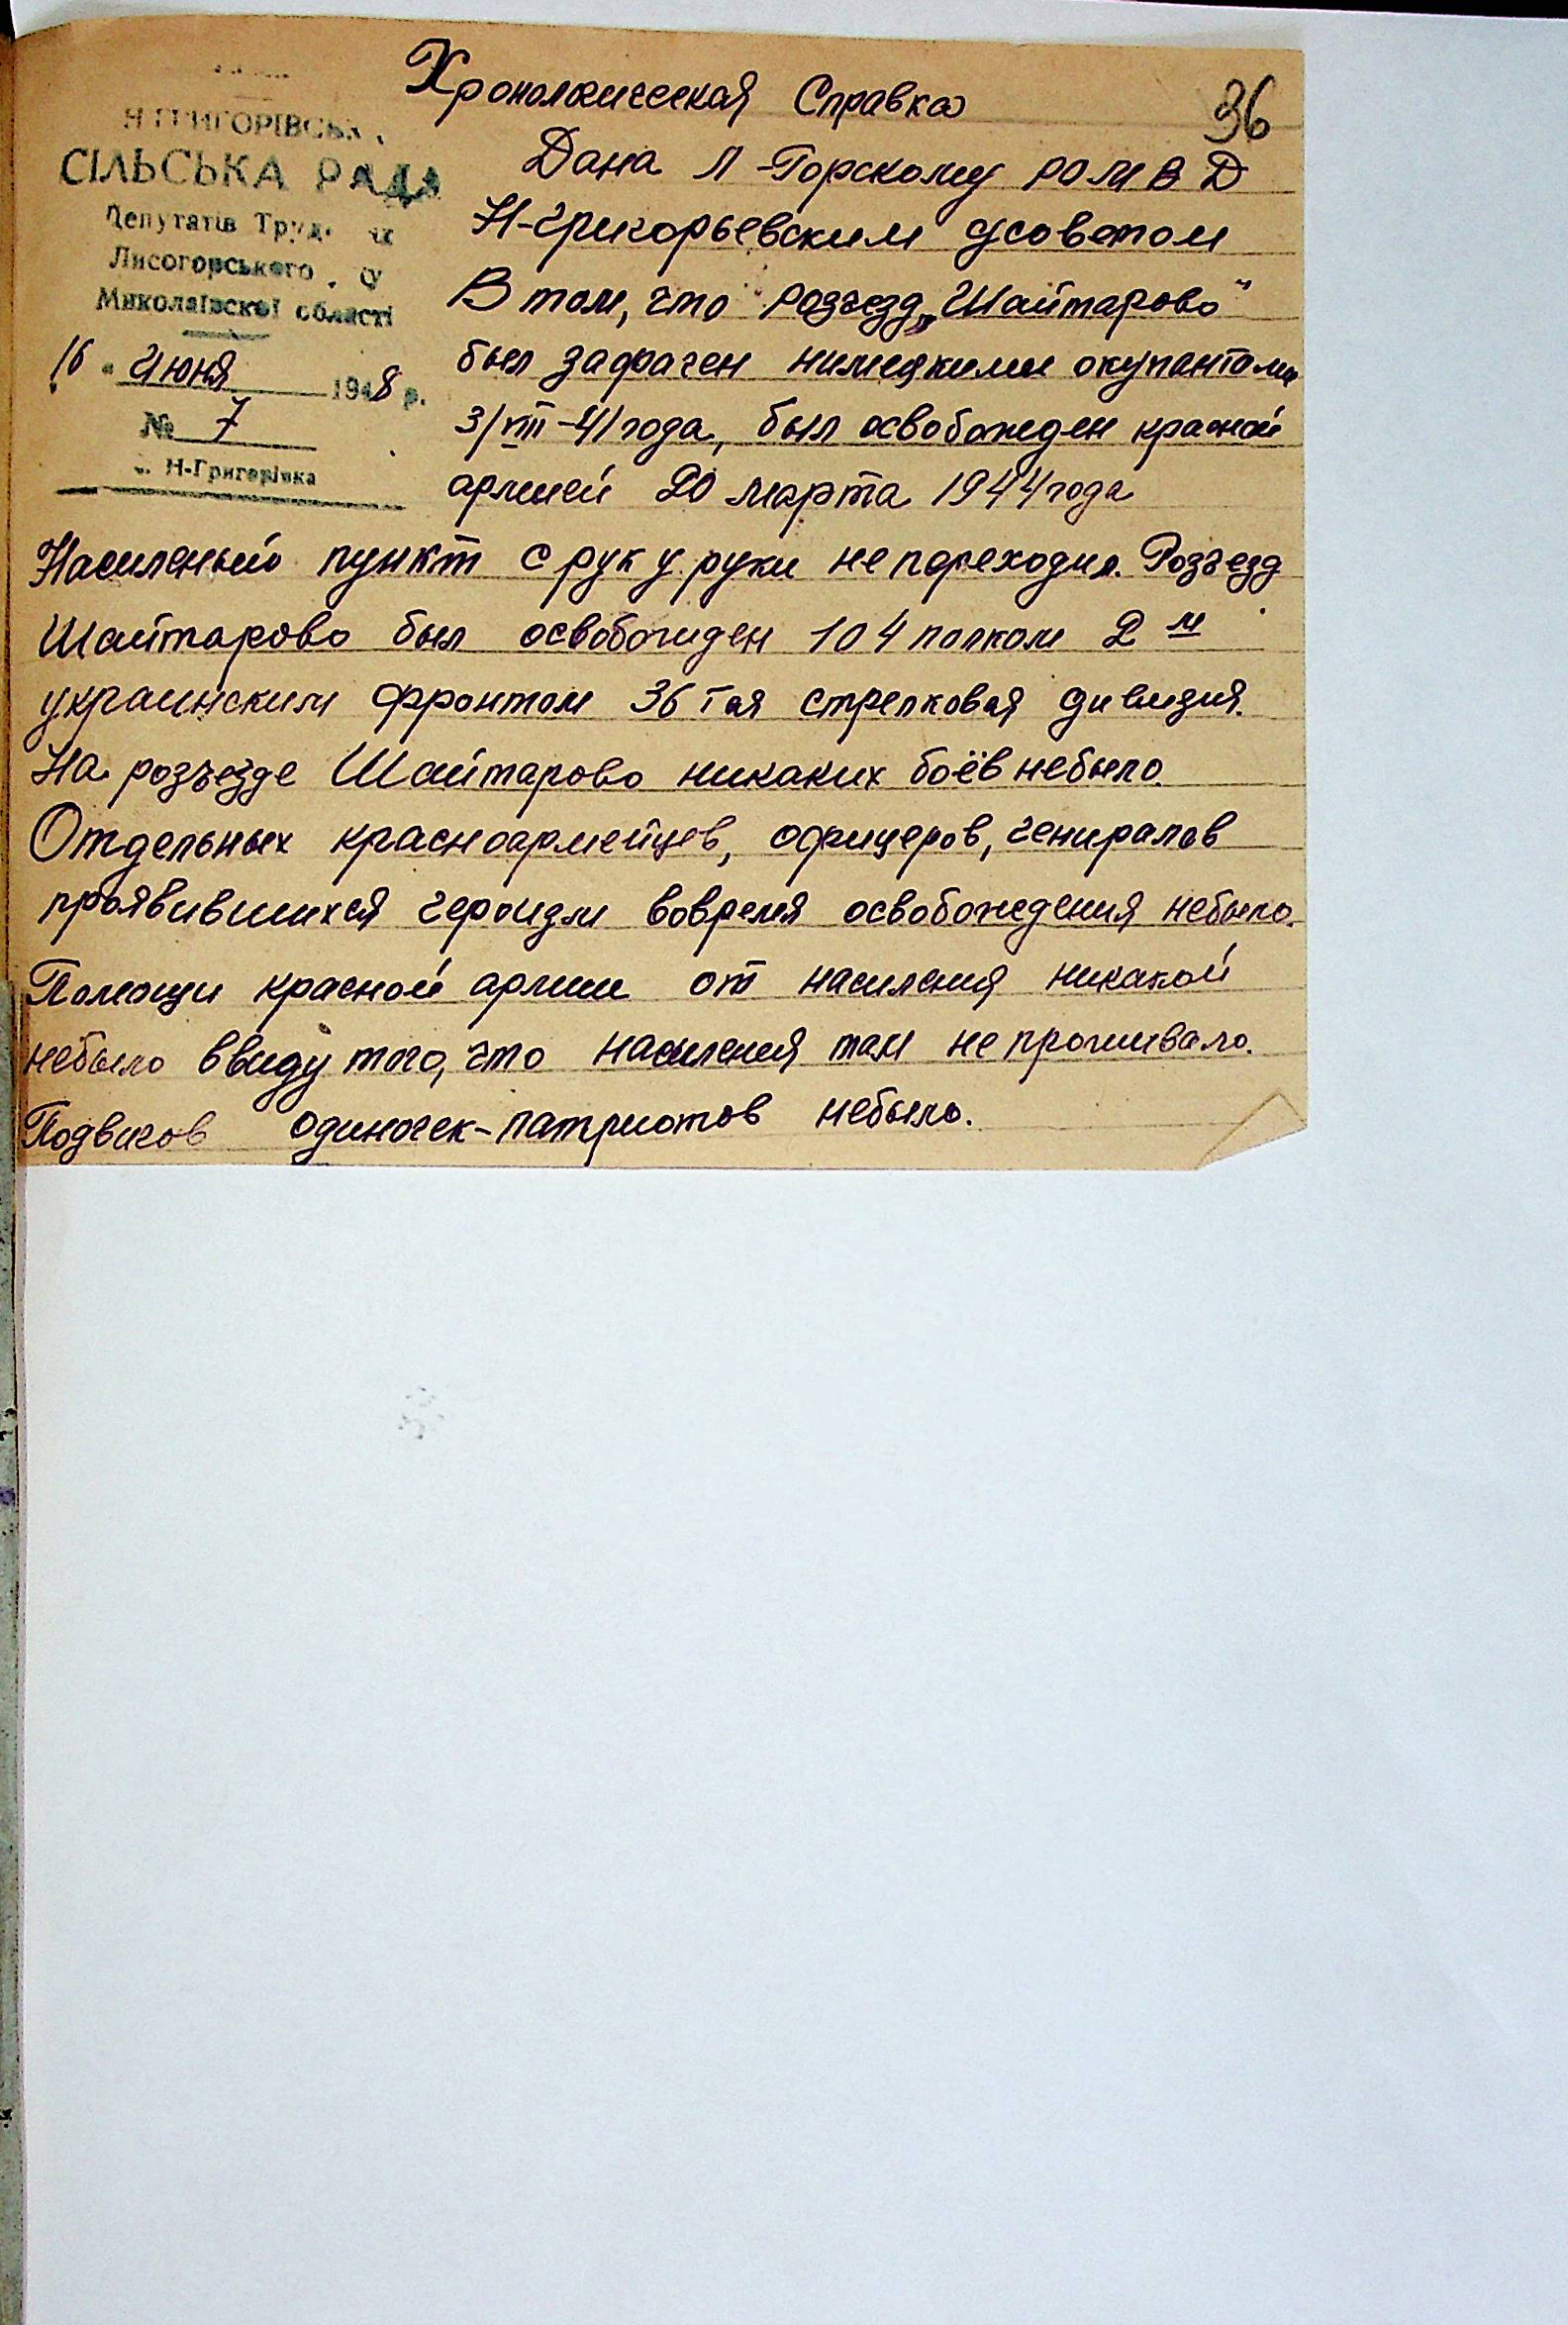 Хронологическая Справка
36
Дана Л-Горскому РО МВД
Н-григорьевским с/советом
В том, что розъезд „Шайтарово"
был зафачен нимецкими окупантами
3/VIII-41 года, был освобожден красной
армией 20 марта 1944 года
Н ГРИГОРІВСЬК
СІЛЬСЬКА РАДА
Депутатів
Лисогорського
Миколаївскої області
16 " Июня 1948 р.
№ 7
с. Н-Григорівка
Насиленый пункт с рук у руки не переходил. Розъезд
Шайтарово был освобожден 104 полком 2 м
украинским фронтом 36 тая стрелковая дивизия.
На розъезде Шайтарово никаких боёв небыло.
Отдельных красноармейцев, офицеров, гениралов
проявившихся героизм вовремя освобождения небыло.
Помощи красной армии от насиления никакой
небыло ввиду того, что насиления там не проживало.
Подвигов одиночек-патриотов небыло.